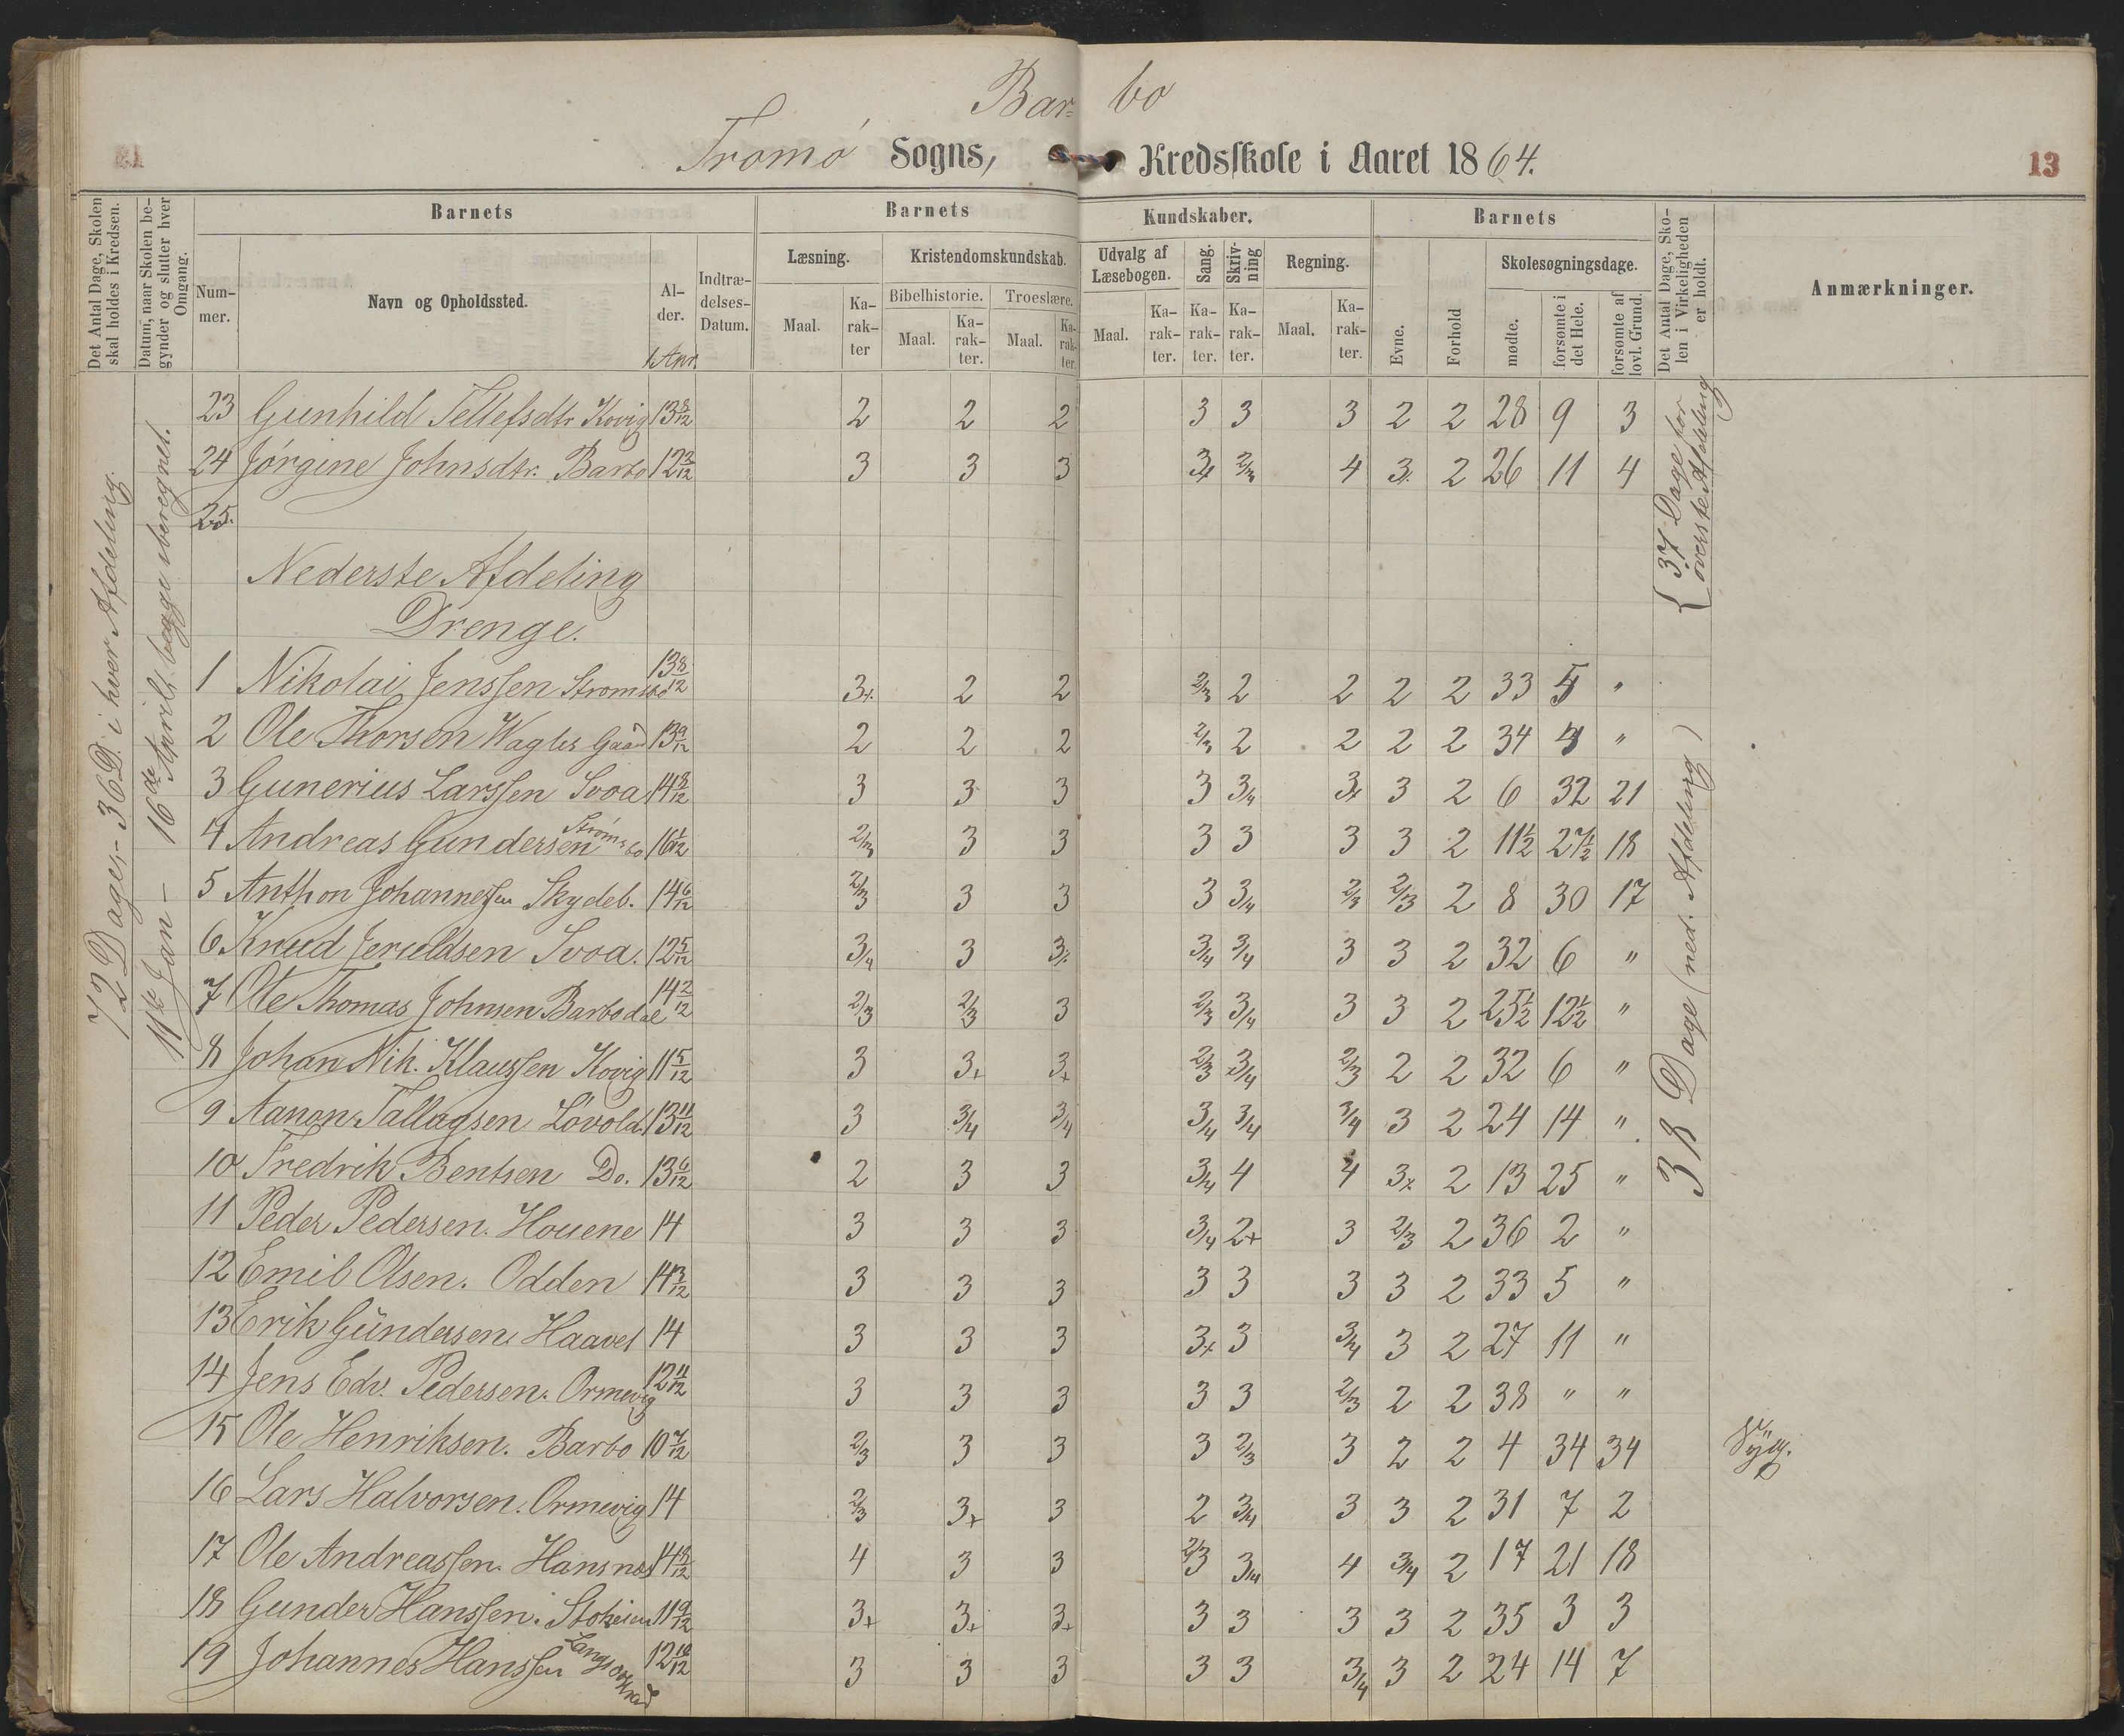 Bar= bo
Tromø Sogns, Kredsskole i Aaret 1864.
13
Det Antal Dage, Skolen skal holdes i Kredsen.
Datum, naar Skolen begynder og slutter hver Omgang.
Barnets
Barnets
Kundskaber.
Barnets
Det Antal Dage, Skolen i Virkeligheden er holdt.
Anmærkninger.
Num-mer.
Navn og Opholdssted.
Al-der.
1 Apr.
Indtræ-delses-Datum.
Læsning.
Kristendomskundskab.
Udvalg af Læsebogen.
Sang.
Skriv-ning
Regning.
Evne.
Forhold
Skolesøgningsdage.
Bibelhistorie.
Troeslære.
Maal.
Ka-rak-ter
Maal.
Ka-rak-ter.
Maal.
Ka-rak-ter.
Maal.
Ka-rak-ter.
Ka-rak-ter.
Ka-rak-ter.
Maal.
Ka-rak-ter.
mødte.
forsømte i det Hele.
forsømte af lovl. Grund.
72 Dage - 36 D. i hver Afdeling.
11te Jan - 16de April begge iberegnet.
23 Gunhild Tellefsdtr Kovig 13 8/12 2 2 2 3 3 3 2 2 28 9 3
24 Jørgine Johnsdtr. Barbo 12 3/12 3 3 3 3+ 2/3 4 3+ 2 26 11 4
25.
{ 37 Dage for øverste Afdeling
Nederste Afdeling
Drenge.
1 Nikolai Jenssen Strømsbo 13 8/12 3+ 2 2 2/3 2 2 2 2 33 5 "
2 Ole Thorsen Wagles Gaard 13 9/12 2 2 2 2/3 2 2 2 2 34 4 "
3 Gunerius Larssen Svoa 14 8/12 3 3 3 3 3/4 3+ 3 2 6 32 21
4 Andreas Gundersen Strømsbo 16 1/12 2/3 3 3 3 3 3 3 2 11½ 27½ 18
5 Anthon Johannessen Skydeb. 14 6/12 2/3 3 3 3 3/4 2/3 2/3 2 8 30 17
6 Knud Jeruldsen Svoa. 12 5/12 3/4 3 3+ 3/4 3/4 3 3 2 32 6 "
7 Ole Thomas Johnsen Barbodal 14 2/12 2/3 2/3 3 2/3 3/4 3 3 2 25½ 12½ "
8 Johan Nik. Klaussen Kovig 11 5/12 3 3+ 3+ 2/3 3/4 2/3 2 2 32 6 "
9 Aanon Tallagsen Løvold. 13 11/12 3 3/4 3/4 3/4 3/4 3/4 3 2 24 14 "
10 Fredrik Bentsen Do. 13 6/12 2 3 3 3/4 4 4 3+ 2 13 25 "
11 Peder Pedersen. Houene 14 3 3 3 3/4 2+ 3 2/3 2 36 2 "
12 Emil Olsen. Odden 14 3/12 3 3 3 3 3 3 3 2 33 5 "
13 Erik Gündersen Haavet 14 3 3 3 3+ 3 3/4 3 2 27 11 "
14 Jens Edv. Pedersen. Ormevig 12 11/12 3 3 3 3 3 2/3 2 2 38 " "
15 Ole Henriksen. Barbo 10 7/12 2/3 3 3 3 2/3 3 2 2 4 34 34 Syg.
16 Lars Halvorsen. Ormevig 14 2/3 3+ 3 2 3/4 3 3 2 31 7 2
17 Ole Andreassen. Hansnæs 14 8/12 4 3 3 2/3 3/4 4 3/4 2 17 21 18
18 Gunder Hanssen. Stokeien 11 9/12 3+ 3+ 3+ 3 3 3 3 2 35 3 3
19 Johannes Hanssen 12 10/12 3 3 3 3 3 3/4 3 2 24 14 7
38 Dage (ned. Afdeling)